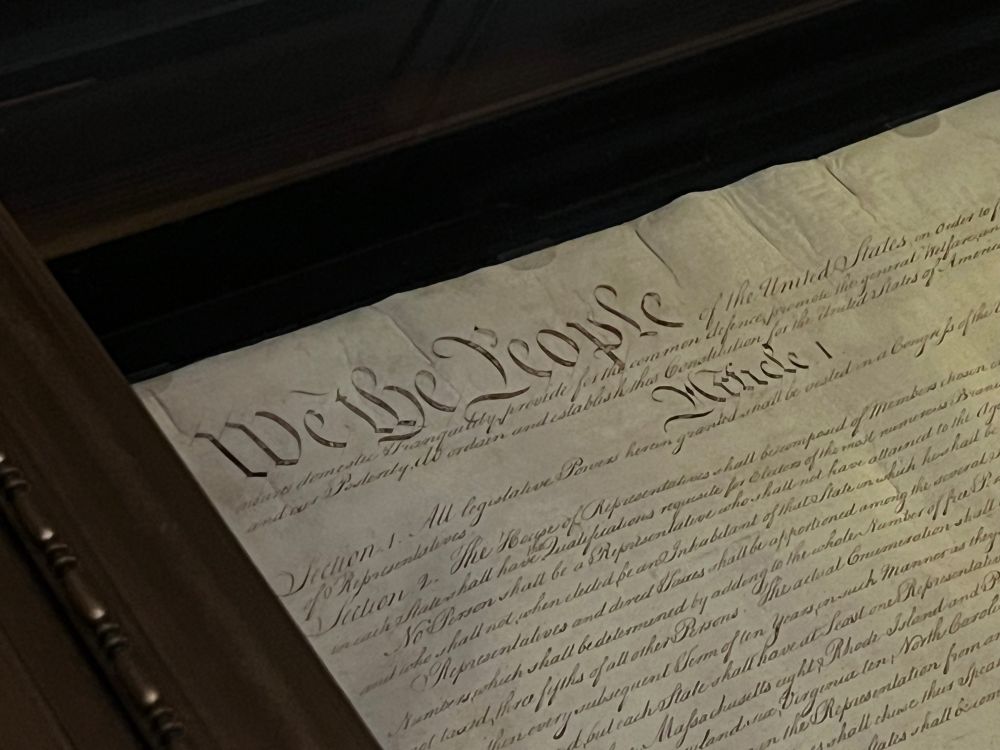 We the People of the United States, in Order to
insure domestic Tranquility, provide for the common defence, promote the general Welfare, an
and our Posterity, do ordain and establish this Constitution for the United States of America
Article I
Section. 1. All legislative Powers herein granted shall be vested in a Congress of the
of Representatives.
Section. 2. The House of Representatives shall be composed of Members chosen
in each State shall have the Qualifications requisite for Electors of the most numerous Bran
No Person shall be a Representative who shall not have attained to the Ag
and who shall not, when elected, be an Inhabitant of that State in which he shall be
Representatives and direct Taxes shall be apportioned among the several
Numbers, which shall be determined by adding to the whole Number of free Pe
not taxed, three fifths of all other Persons. The actual Enumeration shall
then every subsequent Term of ten Years, in such Manner as they
but each State shall have at Least one Representati
Massachusetts eight, Rhode Island and P
yland six, Virginia ten, North Carol
in the Representation from a
shall chuse their Spea
tates shall be com